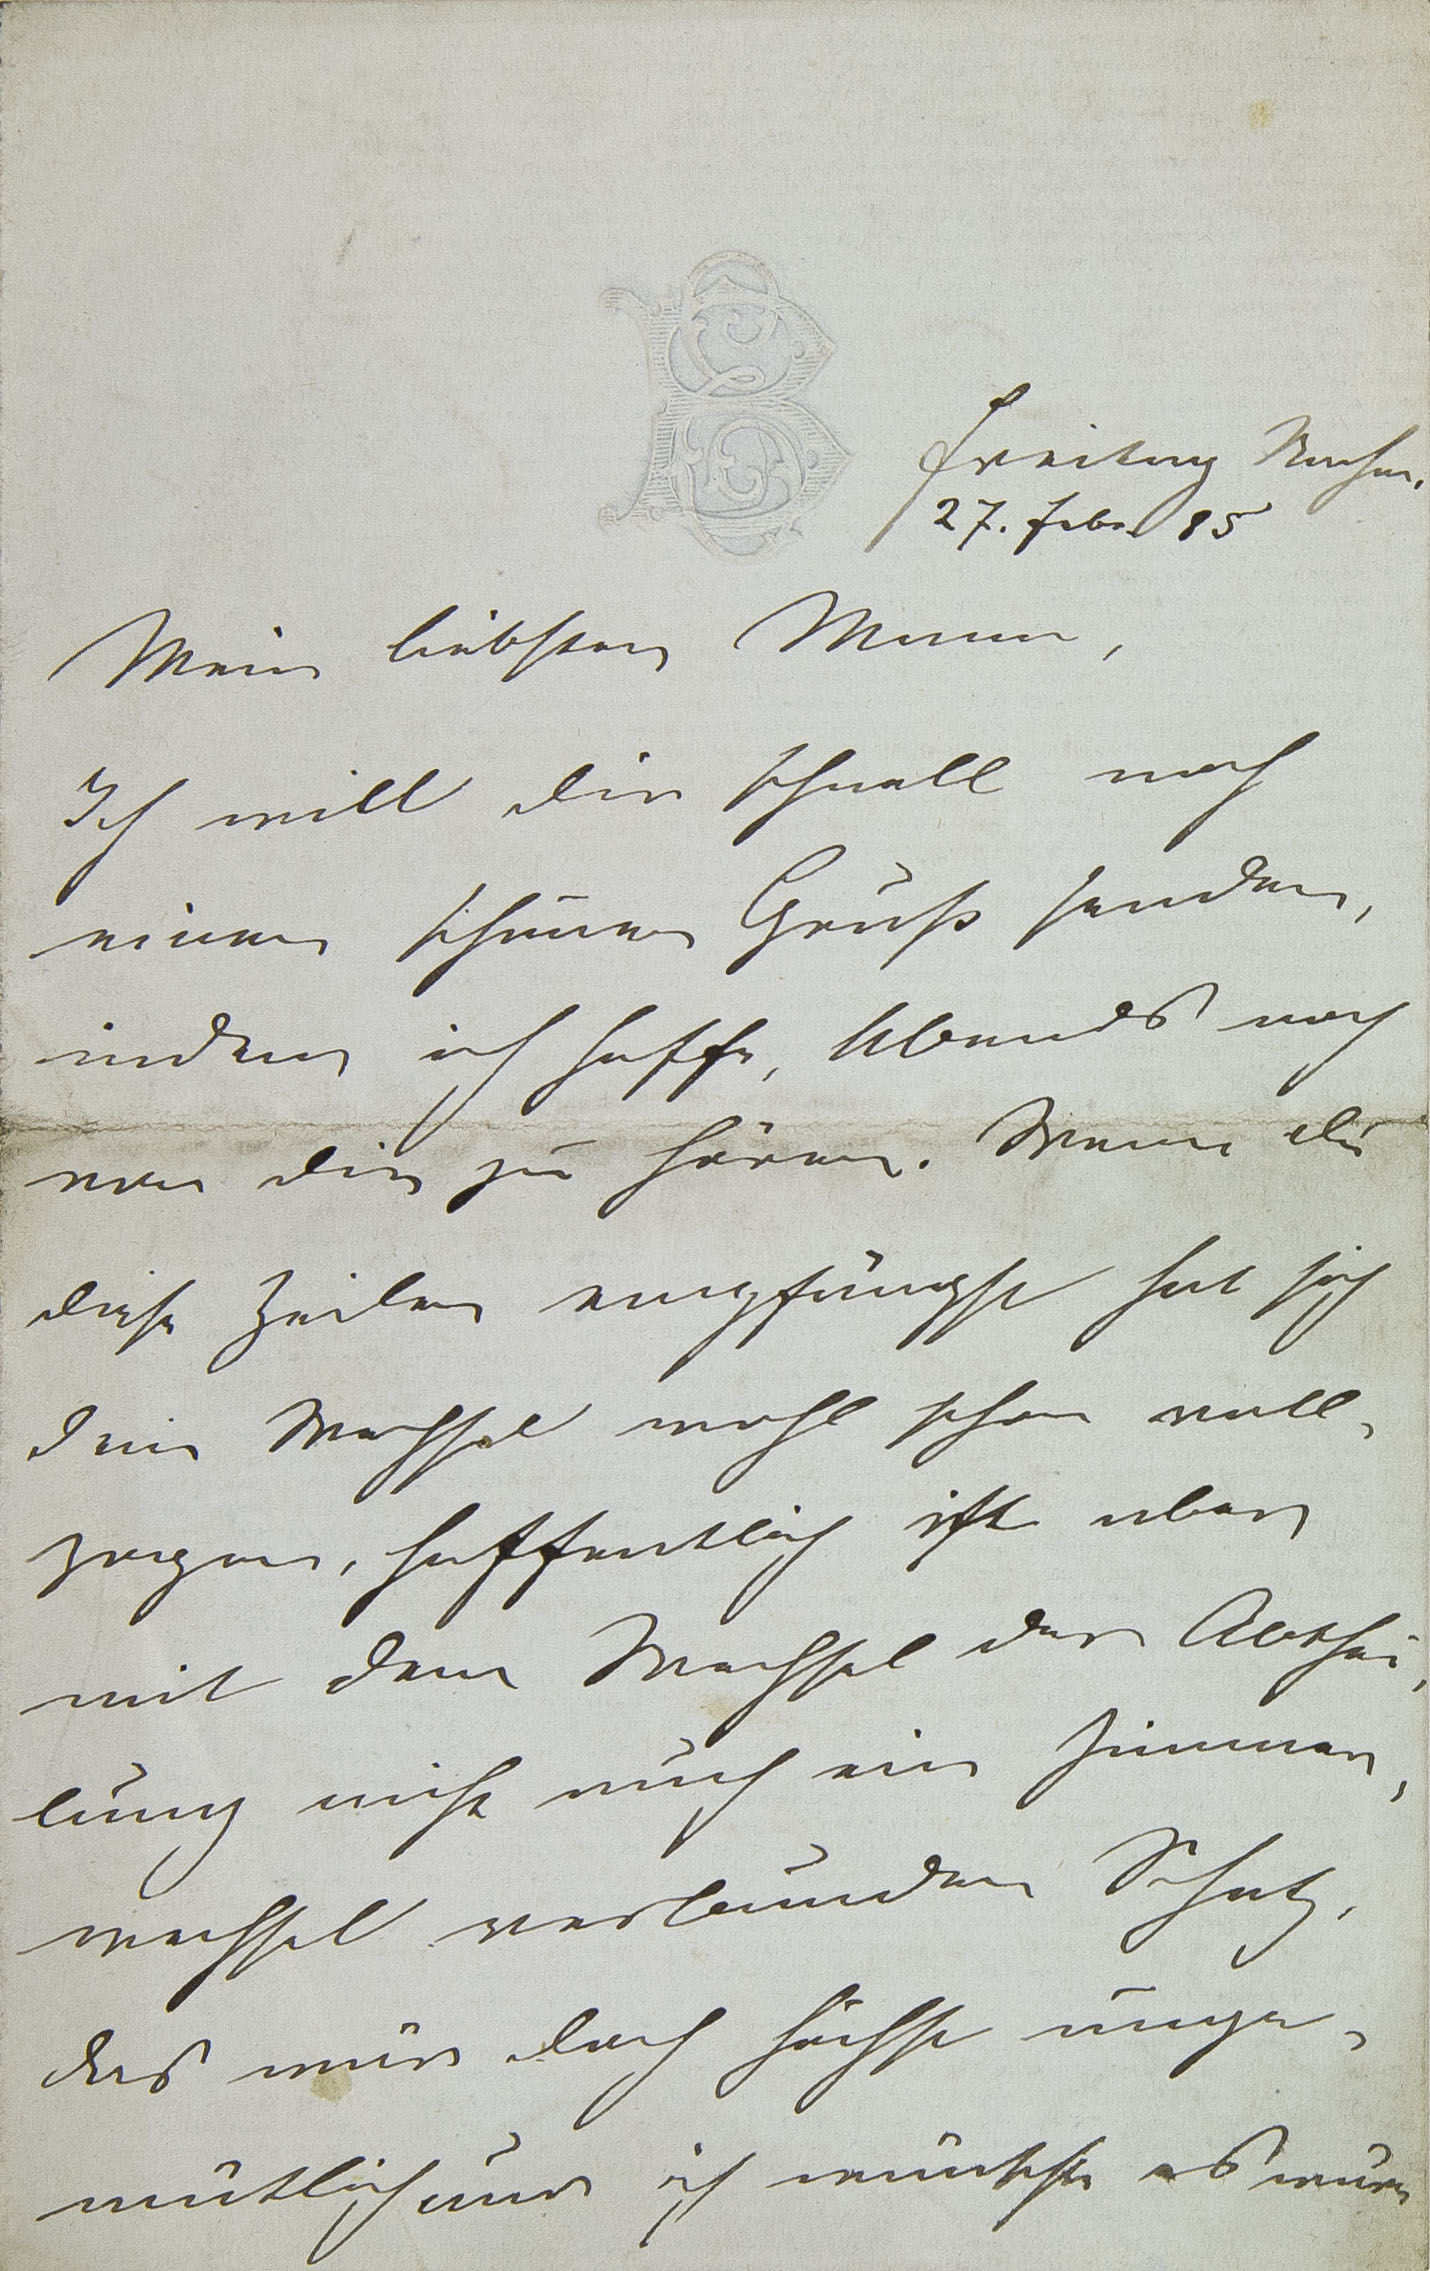 Freitag Nachm.
27. Febr. 85
Mein liebster Mann,
Ich will dir schnell noch
einen schönen Gruß senden,
indem ich hoffe, Abends noch
von dir zu hören. Wenn du
diese Zeilen empfängst hat sich
Dein Wechsel wohl schon voll-
zogen, hoffentlich ist aber
mit dem Wechsel der Abthei-
lung nicht auch ein Zimmer-
wechsel verbunden Schatz,
das wär doch höchst unge-
mütlich und ich wünschte es wäre